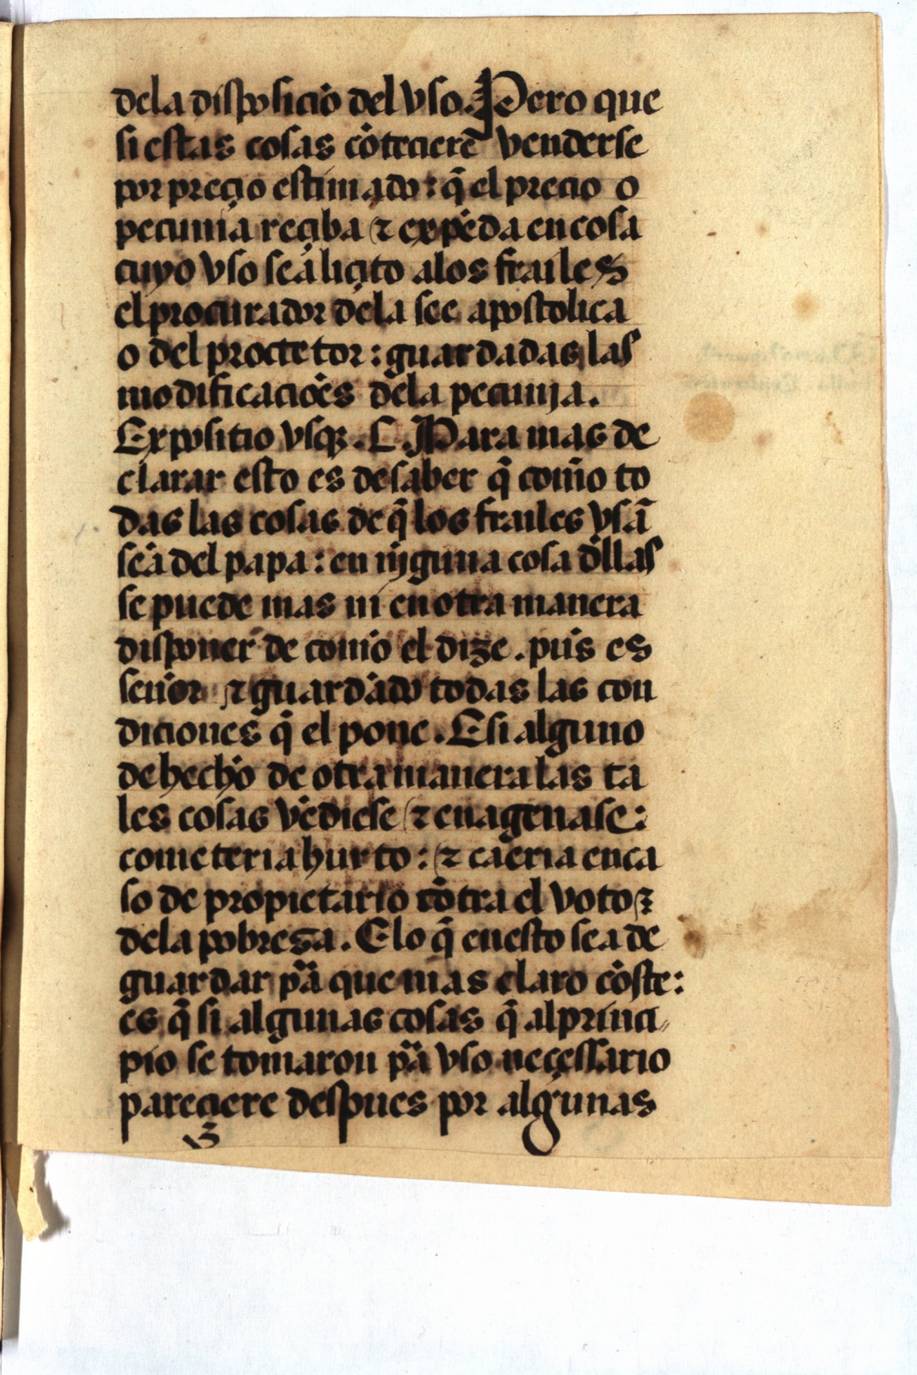 dela disposiciō del vso. Pero que
si estas cosas cōteciere͂ venderse
por preçio estimado: q̄ el precio o
pecunia reçiba ⁊ expēda en cosa
cuyo vso seā liçito alos frailes
el procurador dela see apostolica
o del protector: guardadas las
modificaciōes dela pecunia.
Expositio vsqȝ. C. Para mas de
clarar esto es desaber q̄ com̄o to
das las cosas de q̄ los frailes vsā
seā del papa: en niguna cosa dllas
se puede mas ni en otra manera
disponer de como el dize. pues es
señor ⁊ guardādo todas las con
diciones q̄ el pone. E si alguno
de hecho de otra manera las ta
les cosas vēdiese ⁊ enagenase:
cometeria hurto: ⁊ caeria en ca
so de propietario cōtra el voto
dela pobreza. E lo q̄ en esto sea de
guardar pā que mas claro cōste:
es q̄ si algunas cosas q̄ al princi
pio se tomaron pā vso neçessario
pareciere despues por algunas